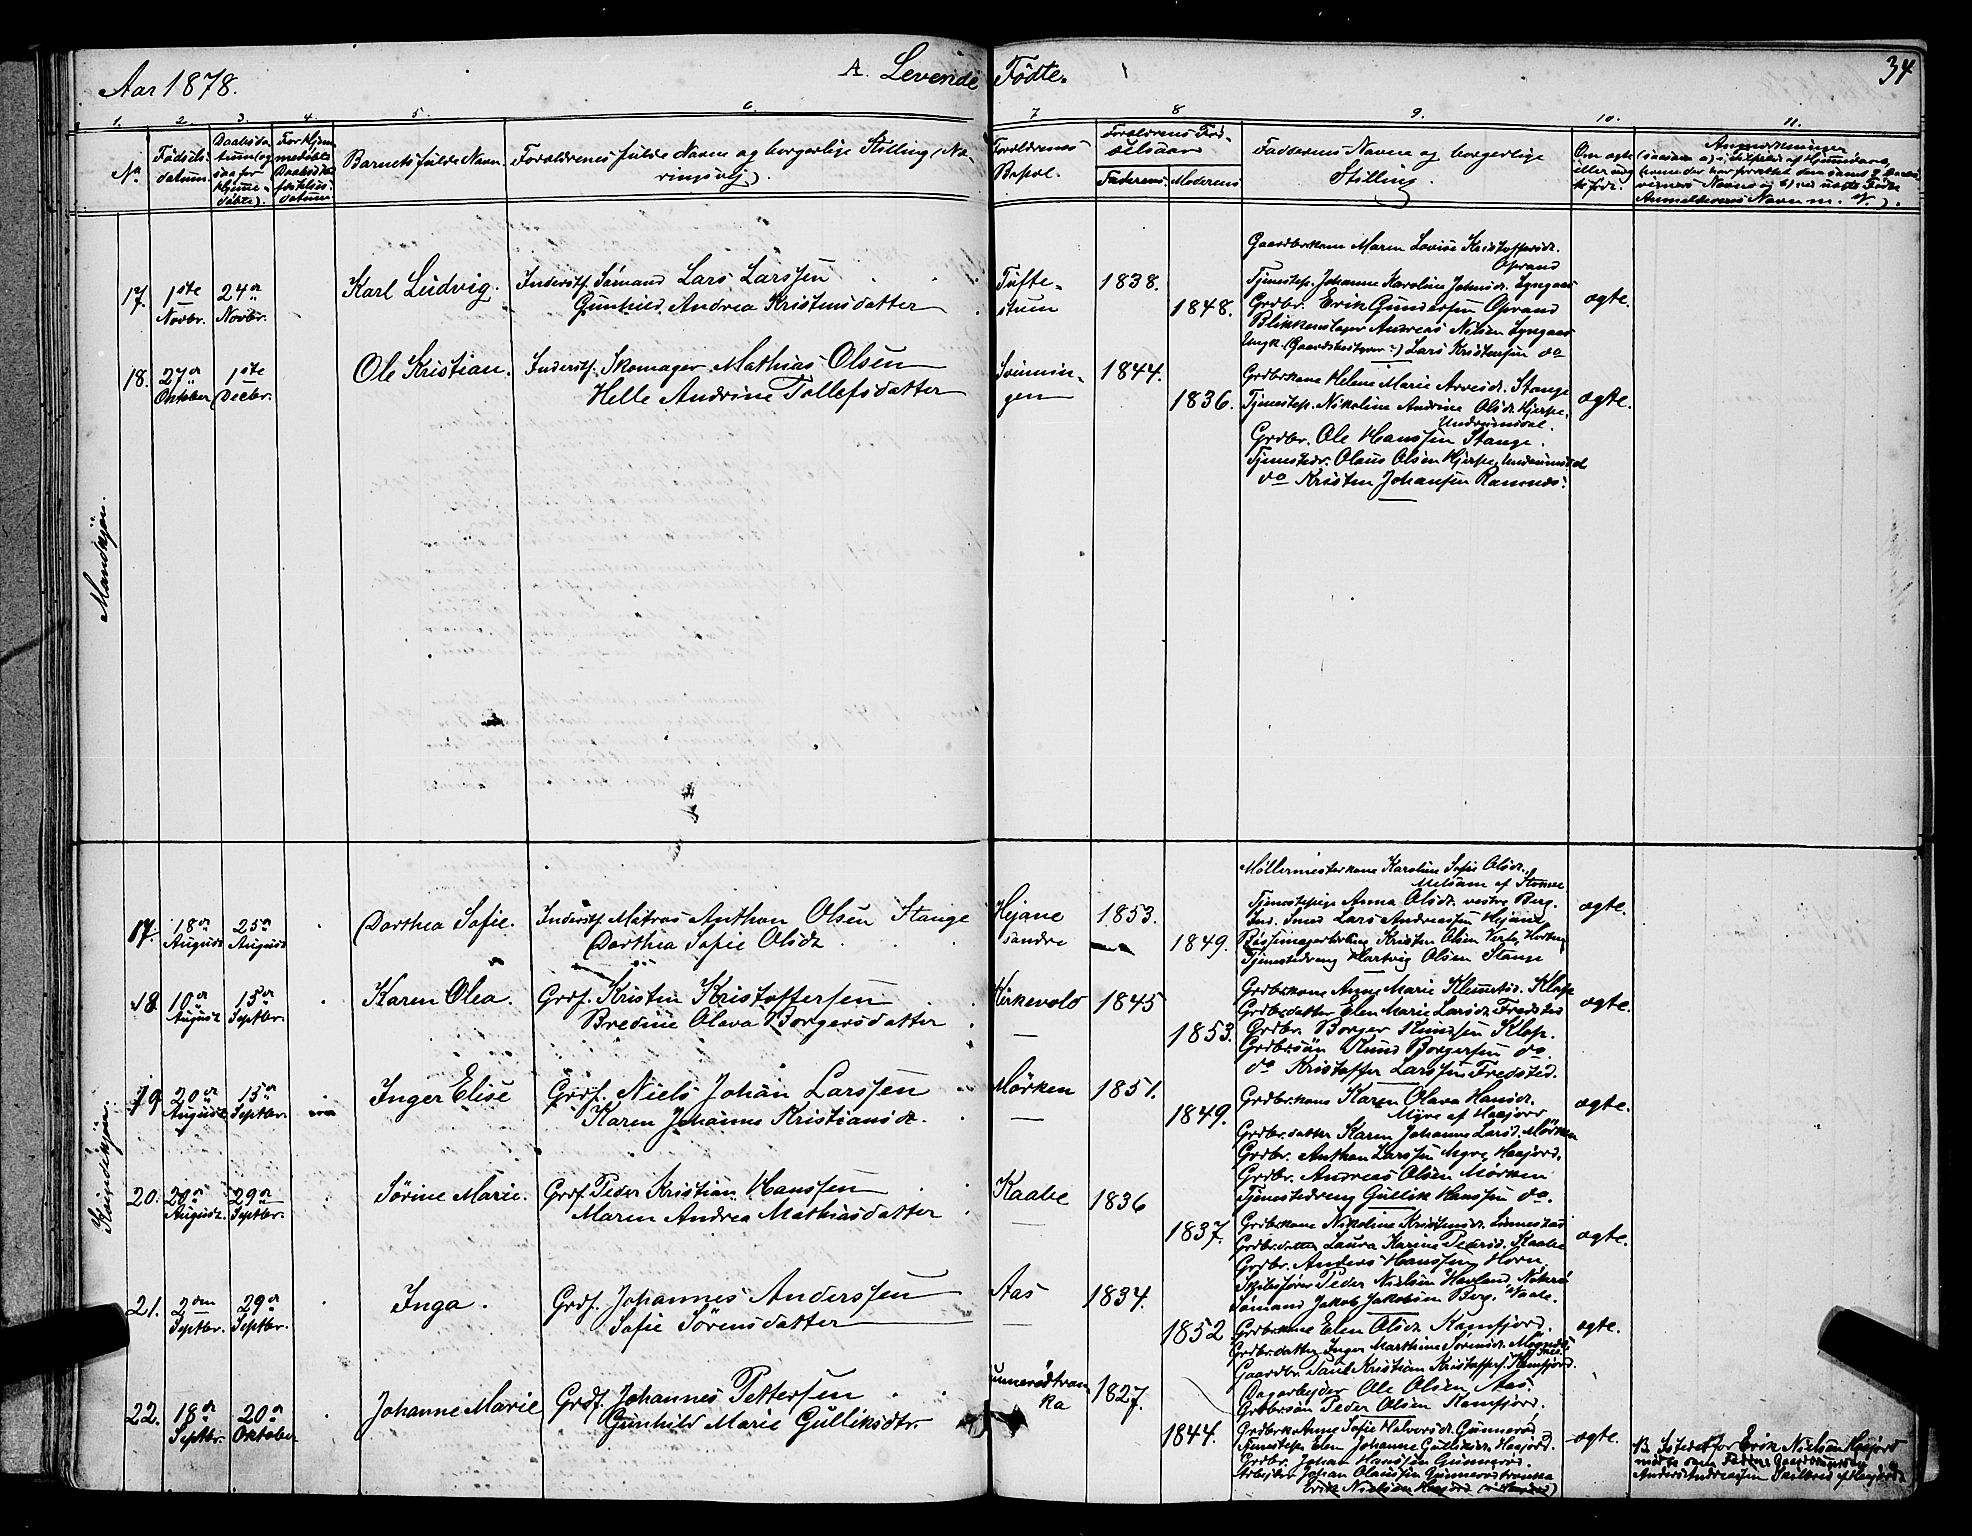 Aar 1878.
A. Levende Fødte.
34
1. 2. 3. 4. 5. 6. 7 8 9. 10. 11.
No
Fødsels-
datum.
Barnets fulde Navn
Forældrenes fulde Navne og borgerlige Stilling (Næ-
ringsvej).
Forældrenes
Bopæl.
Forældrenes Fød-
selsaar
Faderens Moderens
Faddernes Navne og borgerlige
Stilling.
Om ægte
eller uæg-
te født.
Anmærkninger
Mandkjøn.
17. 1ste Novbr. 24de Novbr.
Karl Ludvig.
Inderstf. Sømand Lars Larssen
Gunhild Andrea Kristensdatter
Tufte-
stuen
1838.
1848.
Gaardbrkone Maren Lovise Kristoffersdt.
Oprand
Tjenestep. Johanne Karoline Johnsdt. Lyngaas
Grdbr. Erik Gundersen Oprand
Blikkenslager Andreas Nilsen Lyngaas
Ungk. (Gaardbestyrer) Lars Kristensen do
ægte.
18. 27de Oktober 1ste Decbr.
Ole Kristian.
Inderstf. Skomager Mathias Olsen
Helle Andrine Tollefsdatter
Svinnin-
gen
1844.
1836.
Grdbrkone Helene Marie Arvesdt. Stange
Tjenestep. Nikoline Andrine Olsdt. Hjerpe,
Undrumsdal.
Grdbr. Ole Hanssen Stange.
Tjenestedr. Olaus Olsen Hjerpe, Undrumsdal
do Kristen Johansen Ramnæs.
ægte.
Kvindekjøn.
17. 18de August 25de August
Dorthea Sofie.
Inderstf. Matros Anthon Olsen Stange
Dorthea Sofie Olsdt.
Hejane
søndre
1853.
1849.
Møllermesterkone Karoline Sofie Olsdt.
Melsom af Stokke
Tjenestepige Anna Olsdt. vestre Berg.
Ind. Smed Lars Andreassen Hejane
Kristen Olsen
Tjenestedreng Hartvig Olsen Stange
ægte.
18. 10de August 15de Septbr.
Karen Olea.
Grdf. Kristen Kristoffersen
Bredine Olava Borgersdatter
Kirkevold
1845
1853.
Grdbrkone Anne Marie Klemetsdt. Klop
Grdbrdatter Elen Marie Larsdt. Fredsted
Grdbr. Borger Knudsen Klop.
Grdbrsøn Knud Borgersen do.
do Kristoffer Larssen Fredsted.
ægte.
19 20de August 15de Septbr.
Inger Elise
Grdf. Niels Johan Larssen
Karen Johanne Kristiansdt.
Mørken
1851.
1849.
Grdbrkone Karen Olava Hansdt.
Myre af Haajord
Grdbrdatter Karen Johanne Larsd. Mørken
Grdbr. Anthon Larssen Myre Haajord.
Grdbr. Andreas Olsen Mørken
Tjenestedreng Gullik Hanssen do.
ægte.
20. 20de August. 29de Septbr.
Sørine Marie.
Grdf. Peder Kristian Hanssen
Maren Andrea Mathiasdatter
Kaabe
1836
1837.
Grdbrkone Nikoline Kristensdt. Linnestad
Grdbrdatter Laura Karine Pedersd. Kaabe
Grdbr. Anders Hanssen Horn,
Skibsfører Peder Nielsen Havland, Nøterø
Sømand Jakob Jakobsen Berg, Vaale.
ægte.
21. 2den Septbr. 29de Septbr.
Inga.
Grdf. Johannes Anderssen
Sofie Sørensdatter
Aas
1834.
1852
Grdbrkone Elen Olsdt. Kamfjord.
Grdbrdatter Inger Marthine Sørensdt.
Gaardbr. Paul Kristian Kristoffers. Kamfjord.
Dagarbejder Ole Olsen Aas.
Grdbrsøn Peder Olsen Kamfjord.
ægte.
22. 18de Septbr. 20de Oktober
Johanne Marie
Grdf. Johannes Pettersen
Gunhild Marie Gulliksdtr.
Gunnerødtran-
ka
1827.
1844.
Grdbrkone Anne Sofie Halvorsdt. Gunnerød
Tjenestep. Elen Johanne Gulliksdt. Haajord.
Grdbr. Johan Hanssen Gunnerød.
Arbejder Johan Olaussen Gunnerødtranka
Erik Nielsen Haajord
ægte.
B. Istedetfor Erik Nielsen Haajord
mødte som Fadder Gaardmand
Anders Andreassen af Haajord